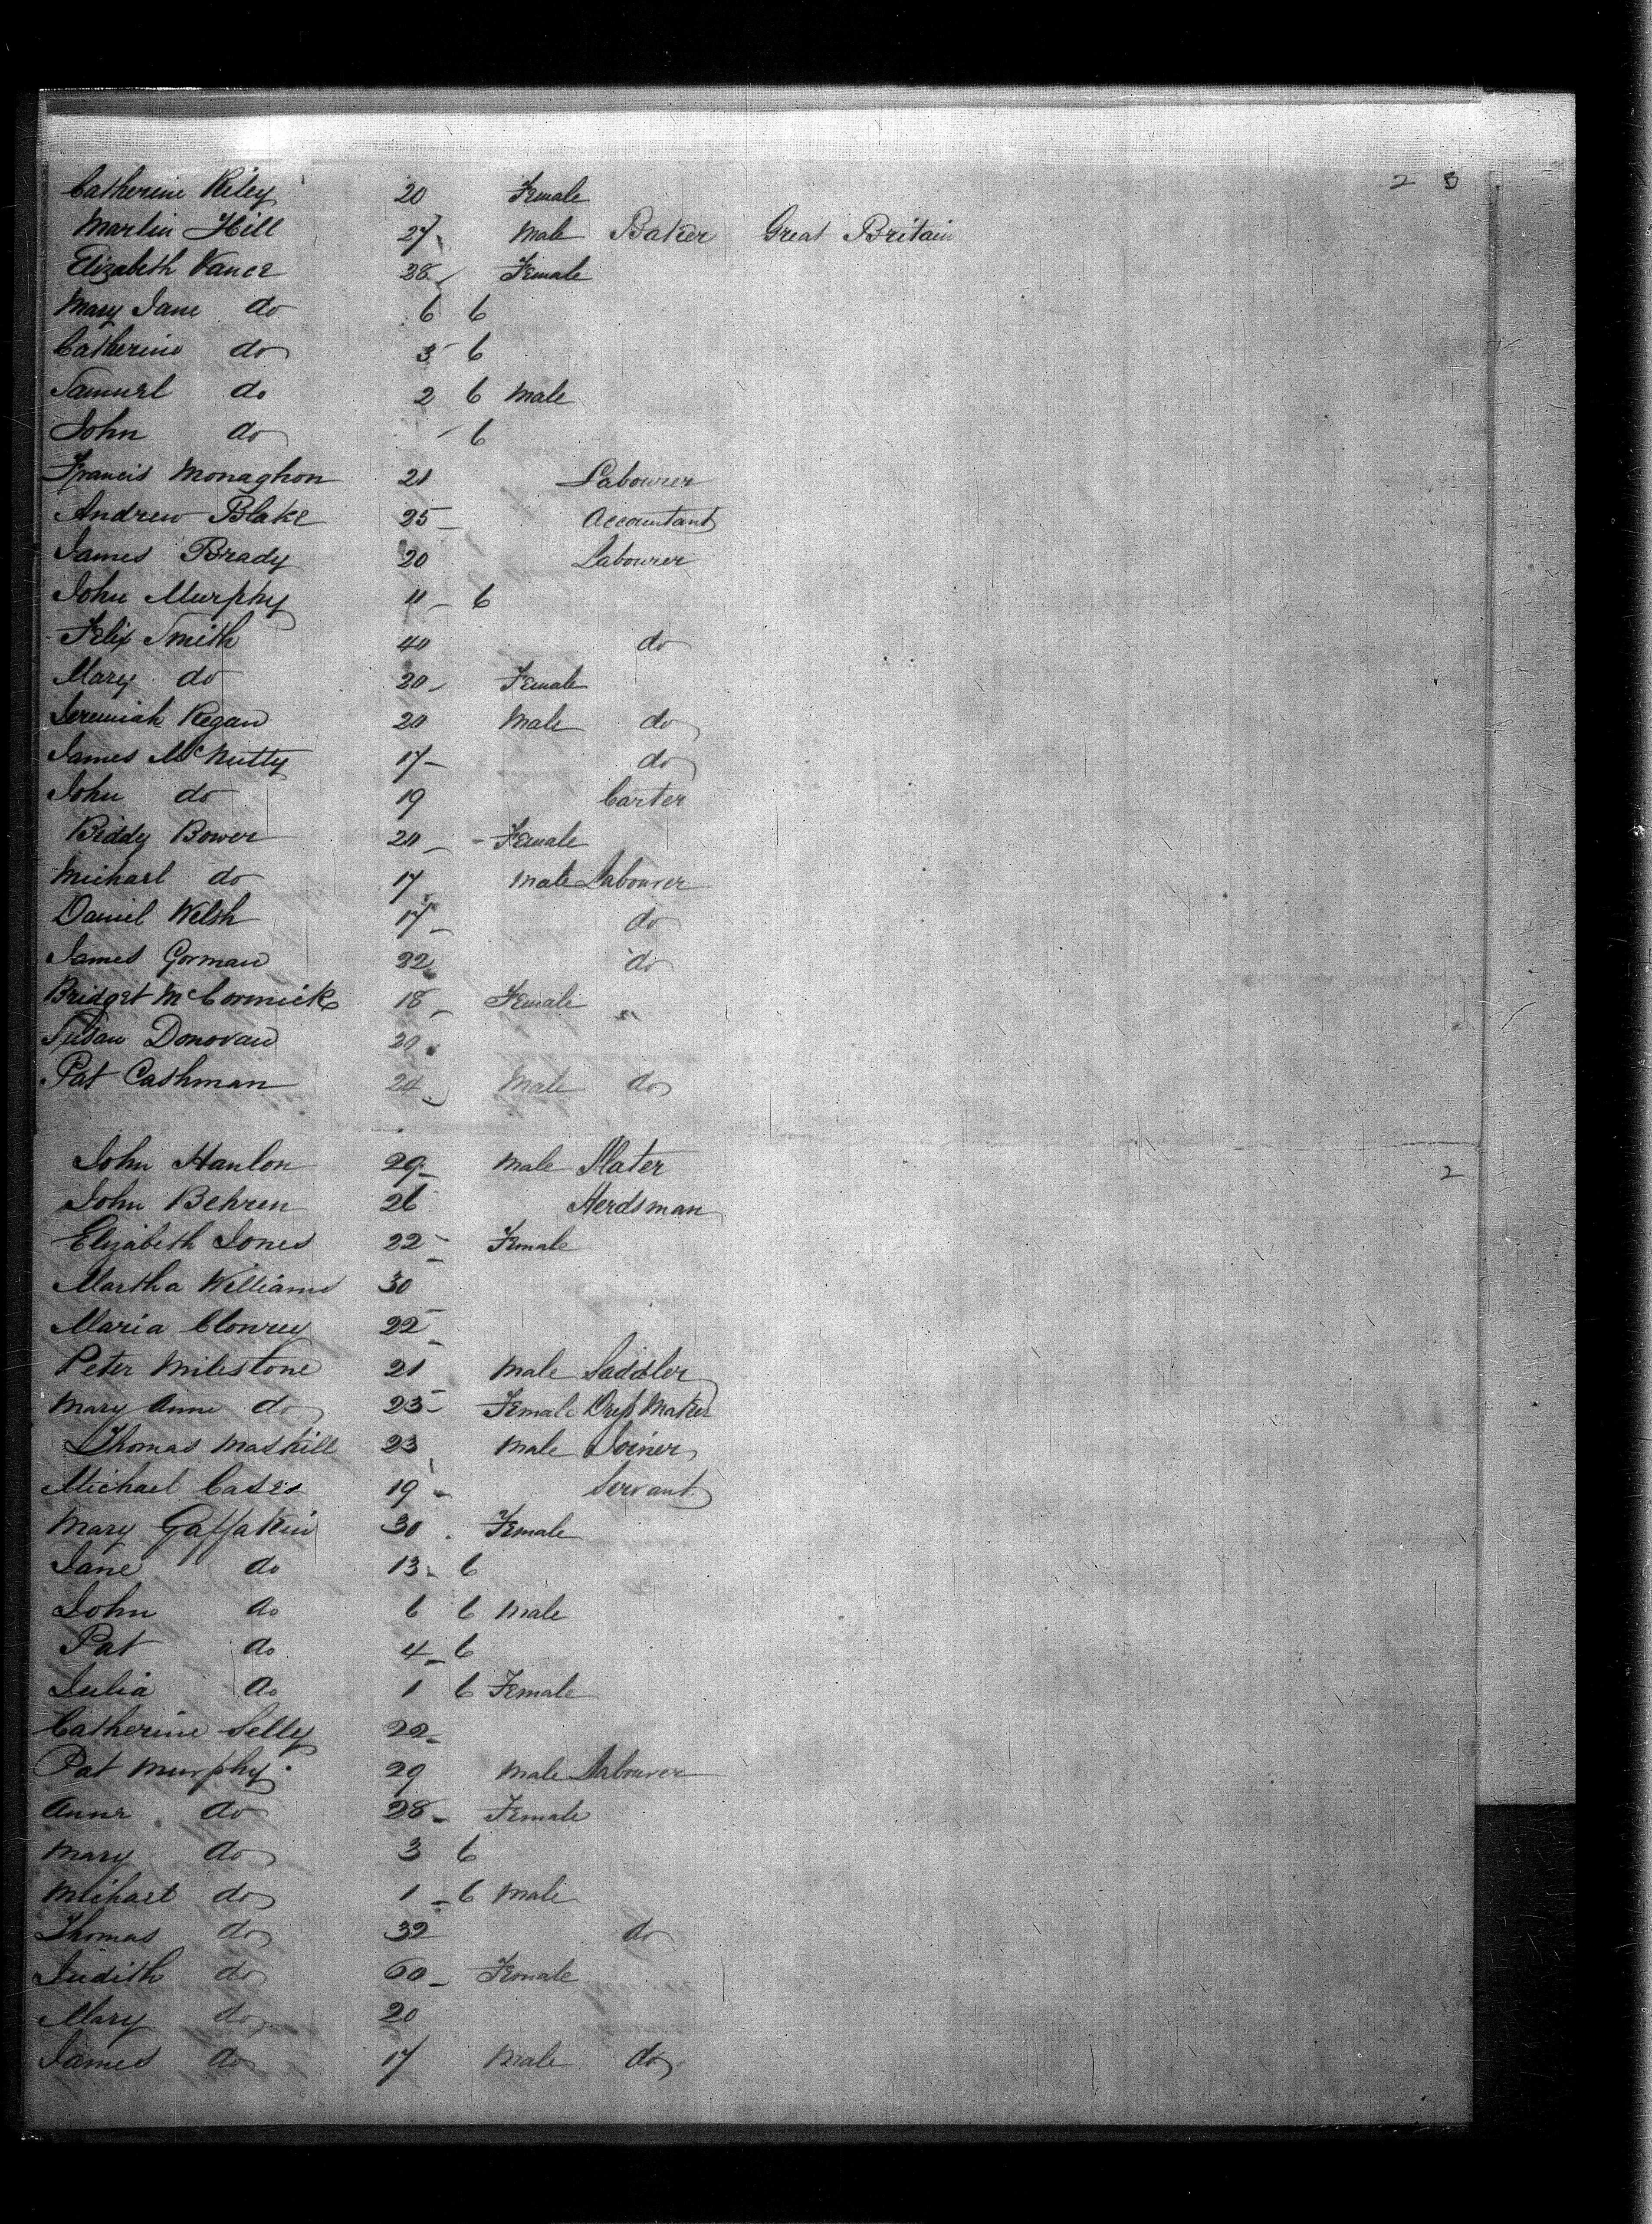 Catherine Riley 20 Female 2 3
Martin Hill 27 Male Baker Great Britain
Elizabeth Vance 28 Female
Mary Jane do 6 6
Catherine do 3 6
Samuel do 2 6 Male
John do 6
Francis Monaghon 21 Labourer
Andrew Blake 25 Accountant
James Brady 20 Labourer
John Murphy 11 6
Felix Smith 40 do
Mary do 20 Female
Jeremiah Regan 20 Male do
James McNutty 17 do
John do 19 Carter
Biddy Bower 20 Female
Michael do 17 Male Labourer
Daniel Welsh 17 do
James Gorman 22 do
Bridget McCormick 18 Female "
Susan Donovan 20
Pat Cashman 24 Male do
John Hanlon 29 Male Slater 2
John Behren 26 Herdsman
Elizabeth Jones 22 Female
Martha Williams 30
Maria Clonrey 22
Peter Milestone 21 Male Saddler
Mary Anne do 23 Female Dress Maker
Thomas Maskill 23 Male Joiner
Michael Cases 19 Servant
Mary Gaffakin 30 Female
Jane do 13 6
John do 6 6 Male
Pat do 4 6
Julia do 1 6 Female
Catherine Selly 22
Pat Murphy 29 Male Labourer
Anne do 28 Female
Mary do 3 6
Mihael do 1 6 Male
Thomas do 32 do
Judith do 60 Female
Mary do 20
James do 17 Male do